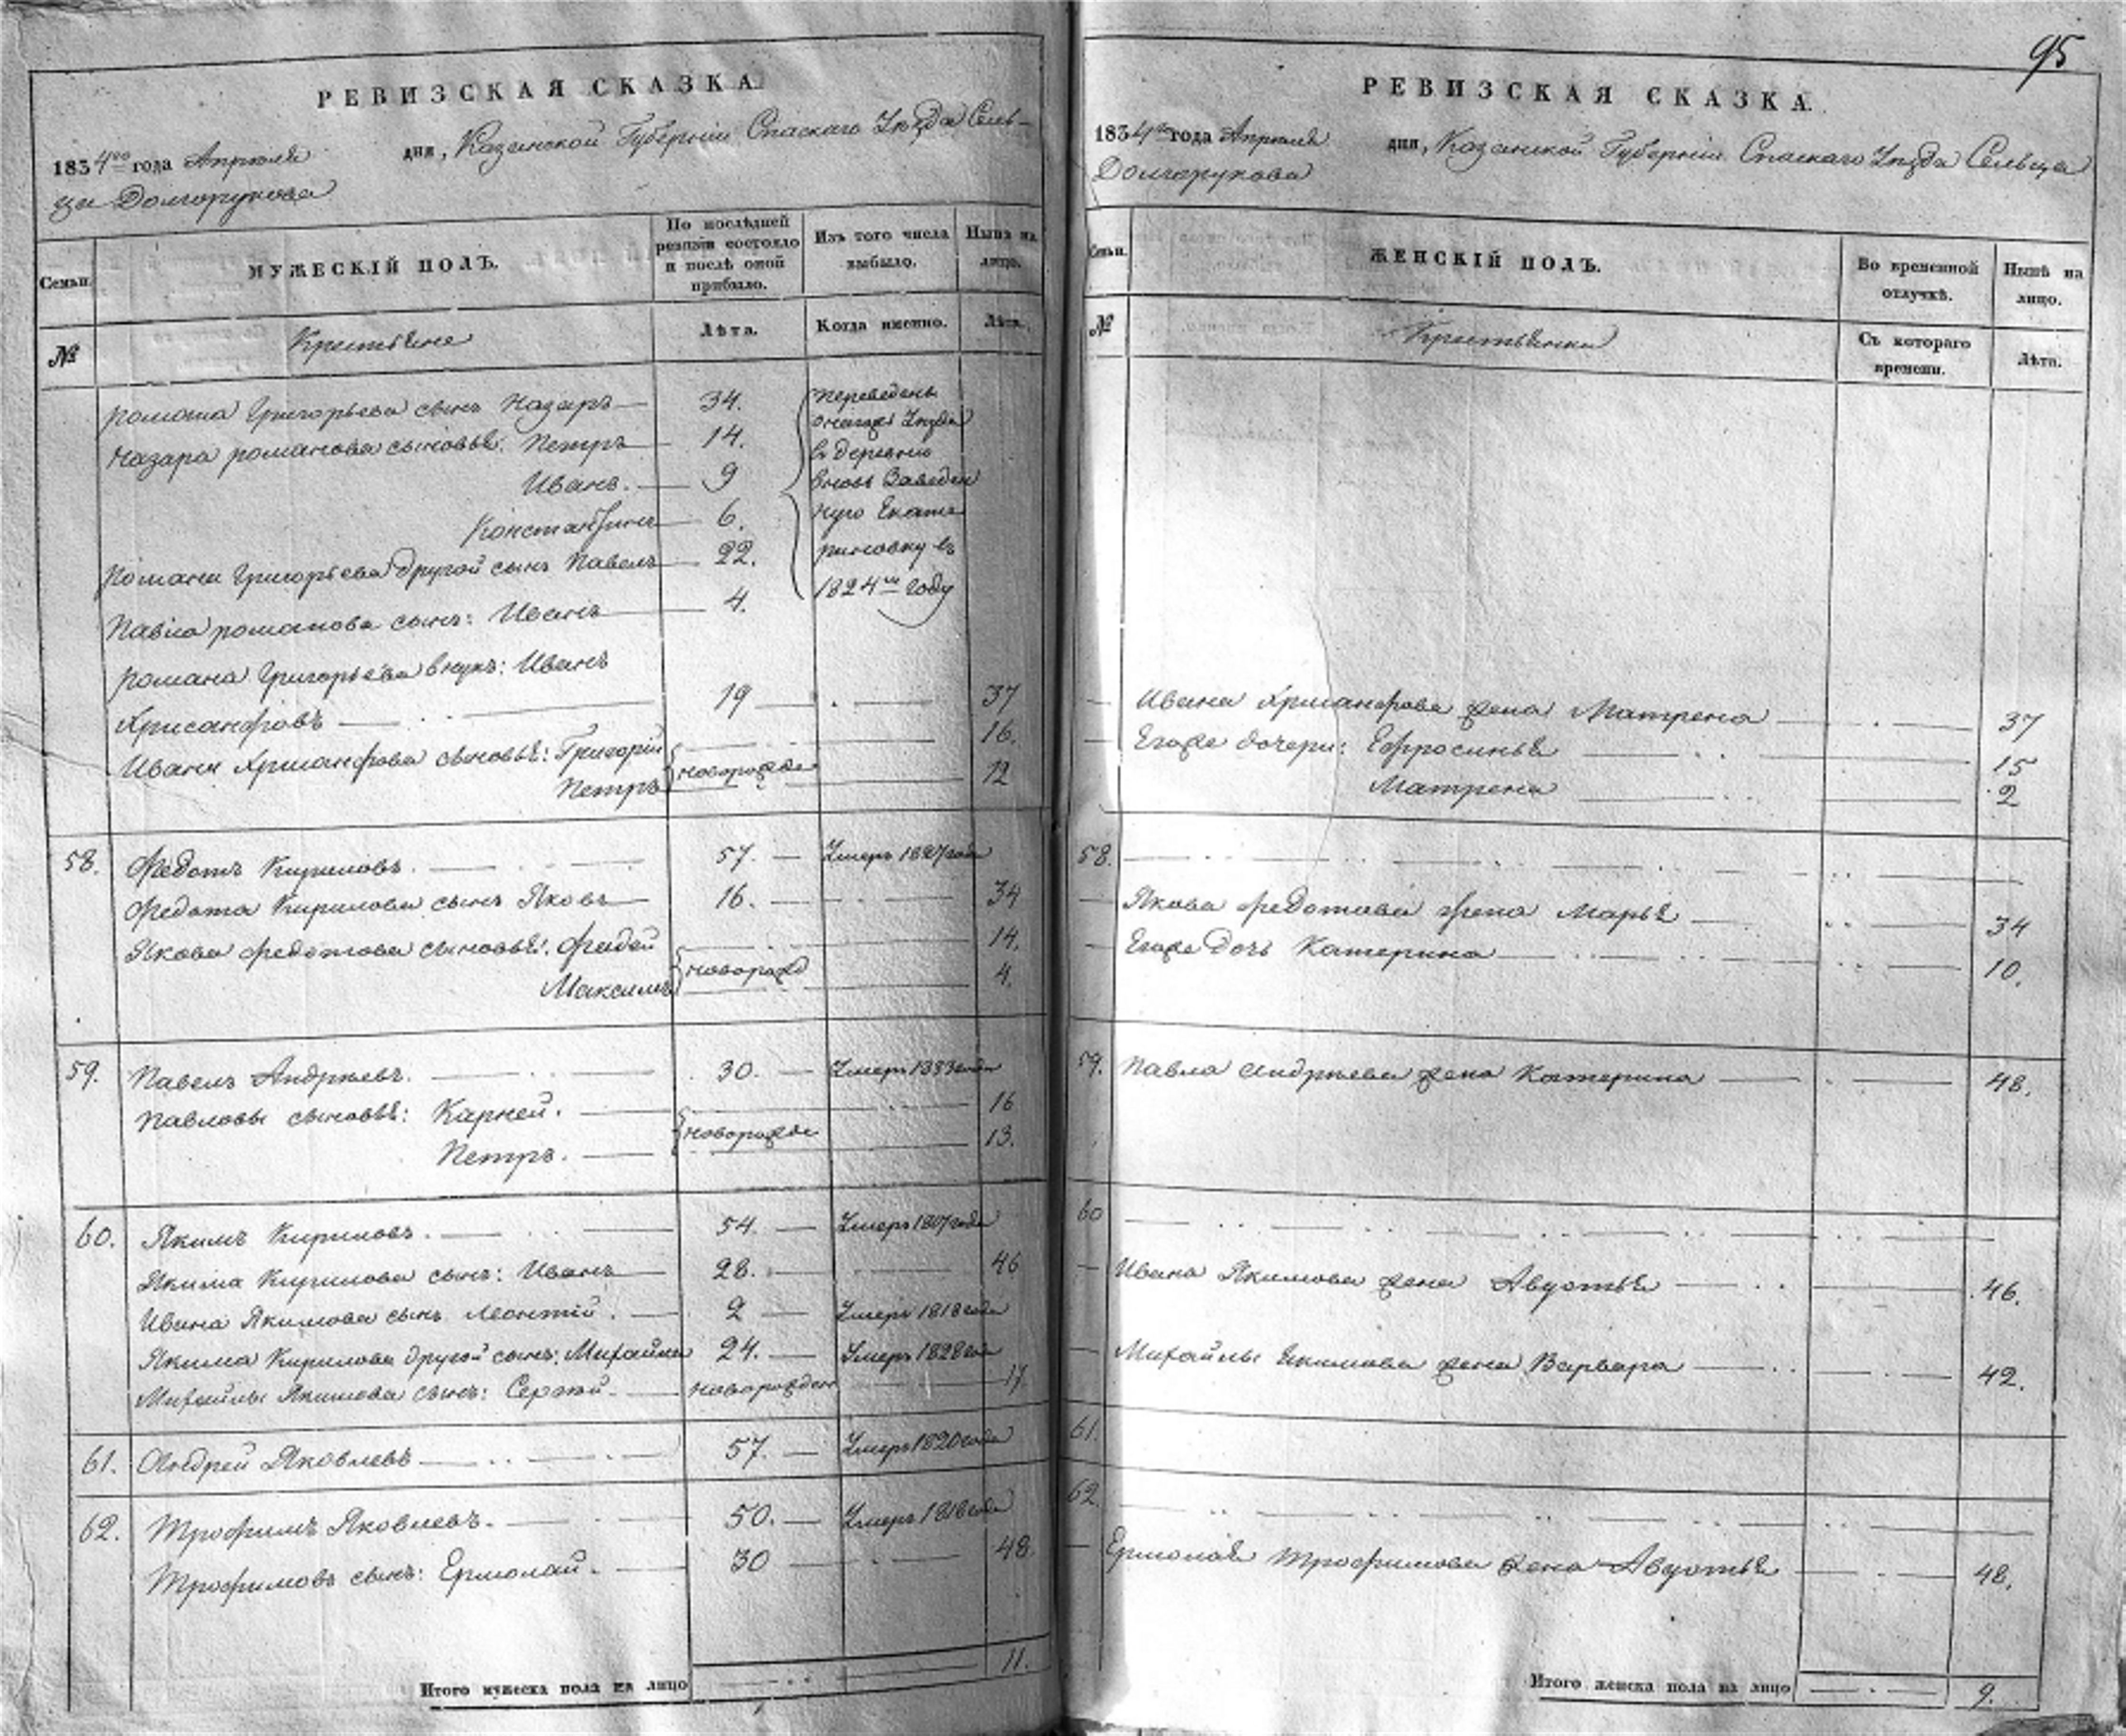 95
РЕВИЗСКАЯ СКАЗКА
1834го года Апреля дня, Казанской Губернiи Спаскаго Уѣзда Сель-
ца Долгорукова
Семьи.
МУЖЕСКIЙ ПОЛЪ.
По послѣдней ревизiи состояло и послѣ оной прибыло.
Изъ того числа выбыло.
Нынѣ на лицо.
№
Крестьяне
Лѣта.
Когда именно.
Лѣта.
Романа Григорьева сынъ Назаръ 34.
Назара романова сыновья: Петръ 14.
Иванъ. 9
Константинъ 6.
Романа Григорьева другой сынъ Павелъ 22.
Павла романова сынъ: Иванъ 4.
переведены
онагожъ Уѣзда
въ деревню
вновь Заведен
ную Екате
риновку въ
1824мъ году
Романа Григорьева внукъ: Иванъ
Хрисанфовъ 19 37
Ивана Хрисанфова сыновья: Григорiй 16.
Петръ новорожде 12
58. Федотъ Кириловъ. 57. Умеръ 1827 года
Федота Кирилова сынъ Яковъ 16. 34
Якова Федотова сыновья: Фадей 14.
Максимъ новорожд 4.
59. Павелъ Андрѣевъ. 30. Умеръ 1833 года
Павловы сыновья: Карней. 16
Петръ. новорожде 13.
60. Якимъ Кириловъ. 54. Умеръ года
Якима Кирилова сынъ: Иванъ 28. 46
Ивана Якимова сынъ Леонтiй. 2 Умеръ 1818 года
Якима Кирилова другой сынъ: Михайла 24. Умеръ 1828 года
Михайлы Якимова сынъ: Сергѣй. новорожден 17
61. Андрей Яковлевъ 57. Умеръ 1820 года
62. Трофимъ Яковлевъ. 50. Умеръ 1818 года
Трофимовъ сынъ: Ермолай. 30 48.
Итого мужеска пола на лицо 11.
РЕВИЗСКАЯ СКАЗКА.
1834го года Апреля дня, Казанской Губернiи Спаскаго Уѣзда Сельца
Долгорукова
Семьи.
ЖЕНСКIЙ ПОЛЪ.
Во временной отлучкѣ.
Нынѣ на лицо.
№
Крестьянки
Съ котораго времени.
Лѣта.
Ивана Хрисанфова жена Матрена 37
Егоже дочери: Ефросинья 15
Матрена 2
58.
Якова Федотова жена Марья 34
Егоже дочь Катерина 10.
59. Павла Андрѣева жена Катерина 48.
60
Ивана Якимова жена Авдотья 46.
Михайлы Екимова жена Варвара 42.
61.
62.
Ермолая Трофимова жена Авдотья 48.
Итого женска пола на лицо 9.